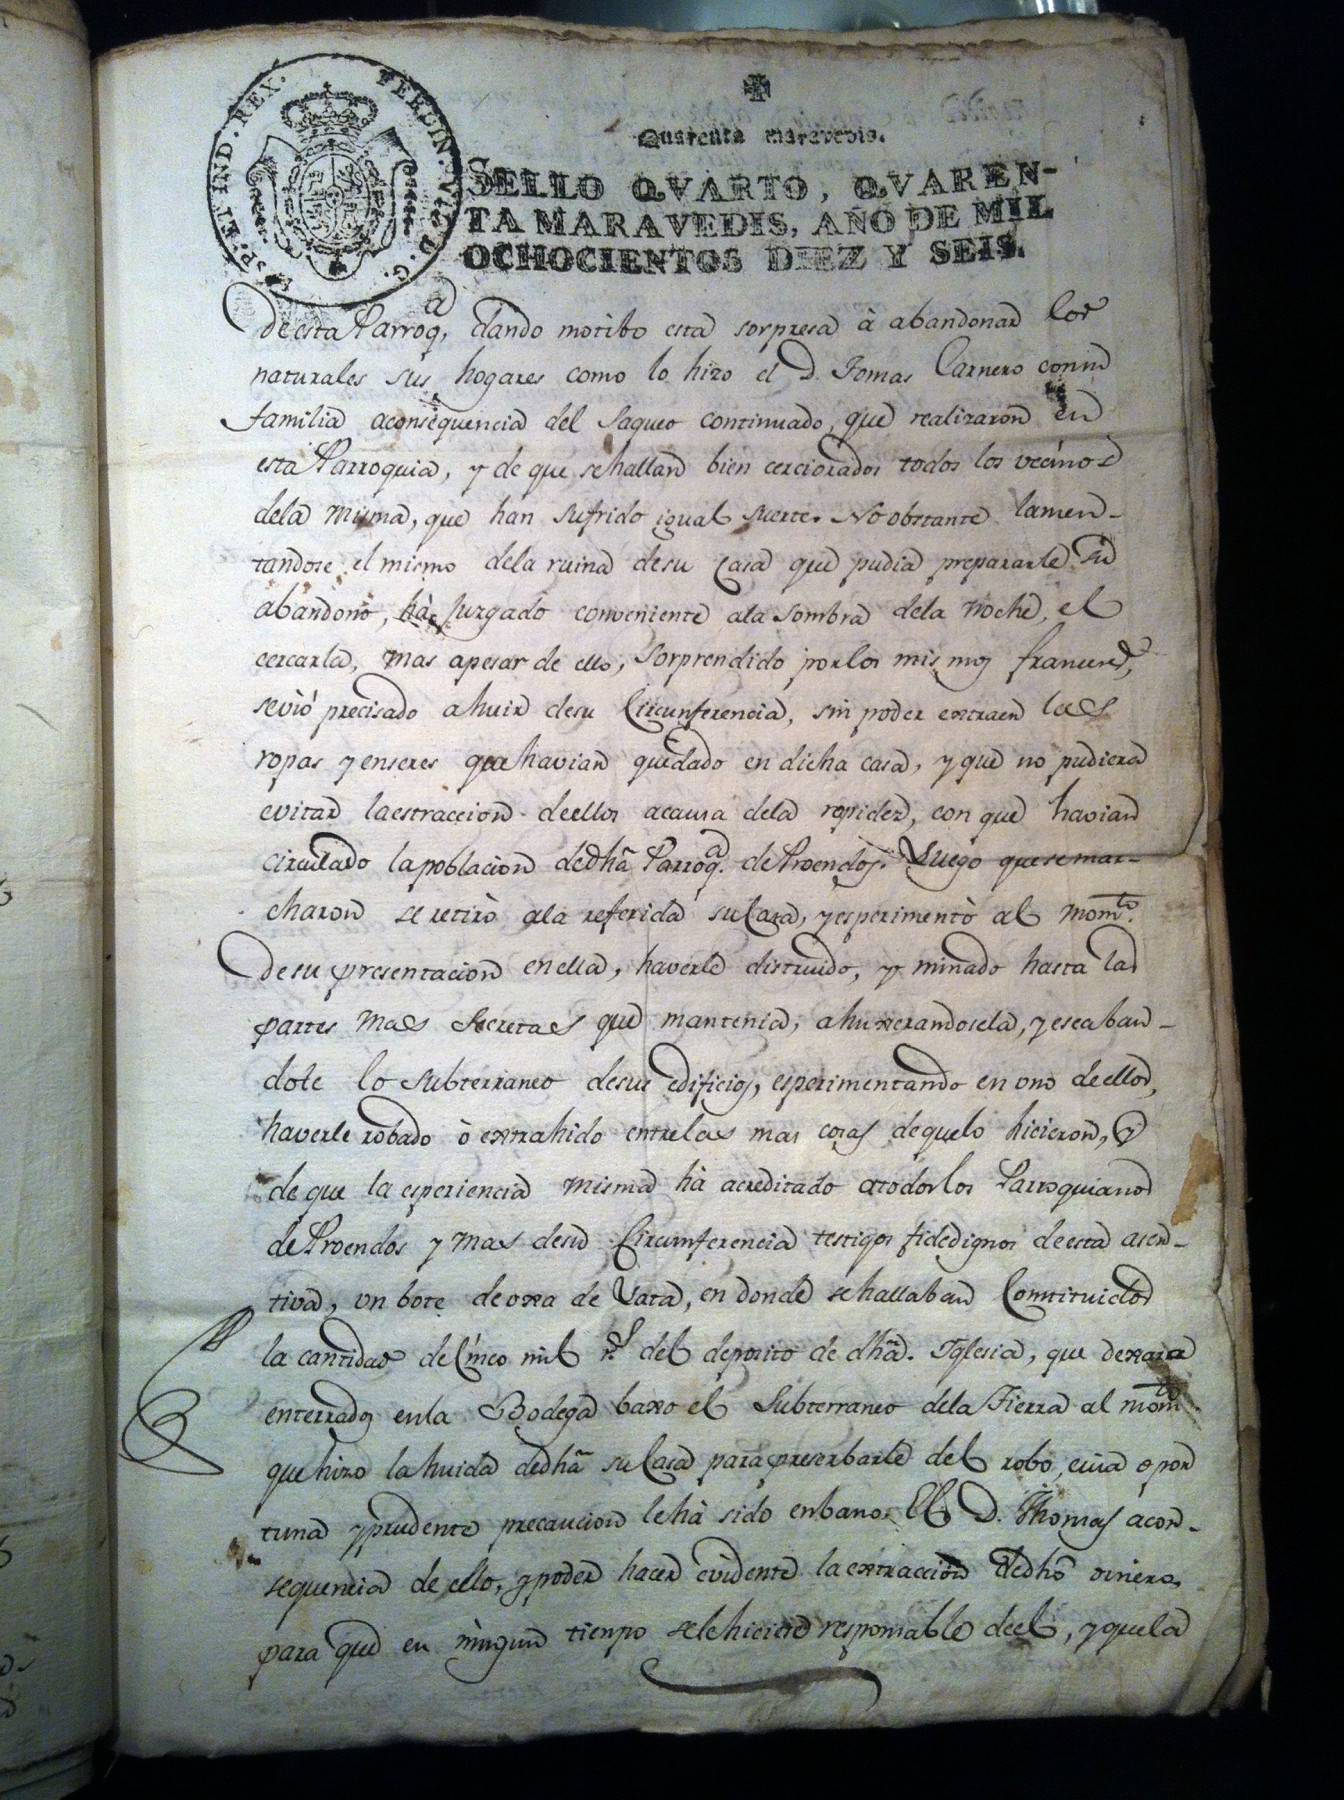 FERDIN. VII. D. G. HISP. ET IND. REX.
Quarenta maravedis.
SELLO QVARTO, QVAREN-
TA MARAVEDIS, AÑO DE MIL
OCHOCIENTOS DIEZ Y SEIS.
de esta Parroq.a, dando motibo esta sorpresa à abandonar los
naturales sus hogares como lo hizo el D. Tomas Carnero con su
familia aconsequencia del saqueo continuado, que realizaron en
esta Parroquia, y de que se hallan bien cerciorados todos los vecinos
dela misma, que han sufrido igual suerte. No obstante lamen-
tandose el mismo dela ruina desu casa que pudia prepararle su
abandono, hà juzgado conveniente ala sombra dela noche, el
cercarla, mas apesar de ello, sorprendido por los mismos franceses,
seviò precisado ahuir desu Circunferencia, sin poder extraer las
ropas y enseres que havian quedado en dicha casa, y que no pudiera
evitar la estraccion deellos acausa dela rapidez, con que havian
circulado la poblacion dedhã Parroq.a de Proendos. Luego que se mar-
charon se retirò ala referida su Casa, y esperimentò al mom.to
de su presentacion en ella, haverle distruido, y minado hasta las
partes mas secretas que mantenia, ahuxerandosela, y escaban-
dole lo subterraneo desus edificios, esperimentando en uno de ellos,
haverle robado ò extrahido entre las mas cosas dequelo hicieron, y
de que la esperiencia misma hà acreditado atodos los Parroquianos
de Proendos y mas desu Circunferencia testigos fidedignos de esta aser-
tiva, un bote deoxa de Lata, en donde se hallaban Constituidos
la cantidad de Cinco mil r.s del deposito de dhã. Iglesia, que dexara
enterrados enla Bodega baxo el Subterraneo dela Tierra al mom.to
que hizo la huida dedhã su Casa para preserbarle del robo, cuia opor
tuna y prudente precaucion le hà sido enbano. El D. Thomas acon-
sequencia de ello, y poder hacer evidente la extraccion dedhõ dinero,
para que en ningun tienpo sele hiciese responsable deel, y que la